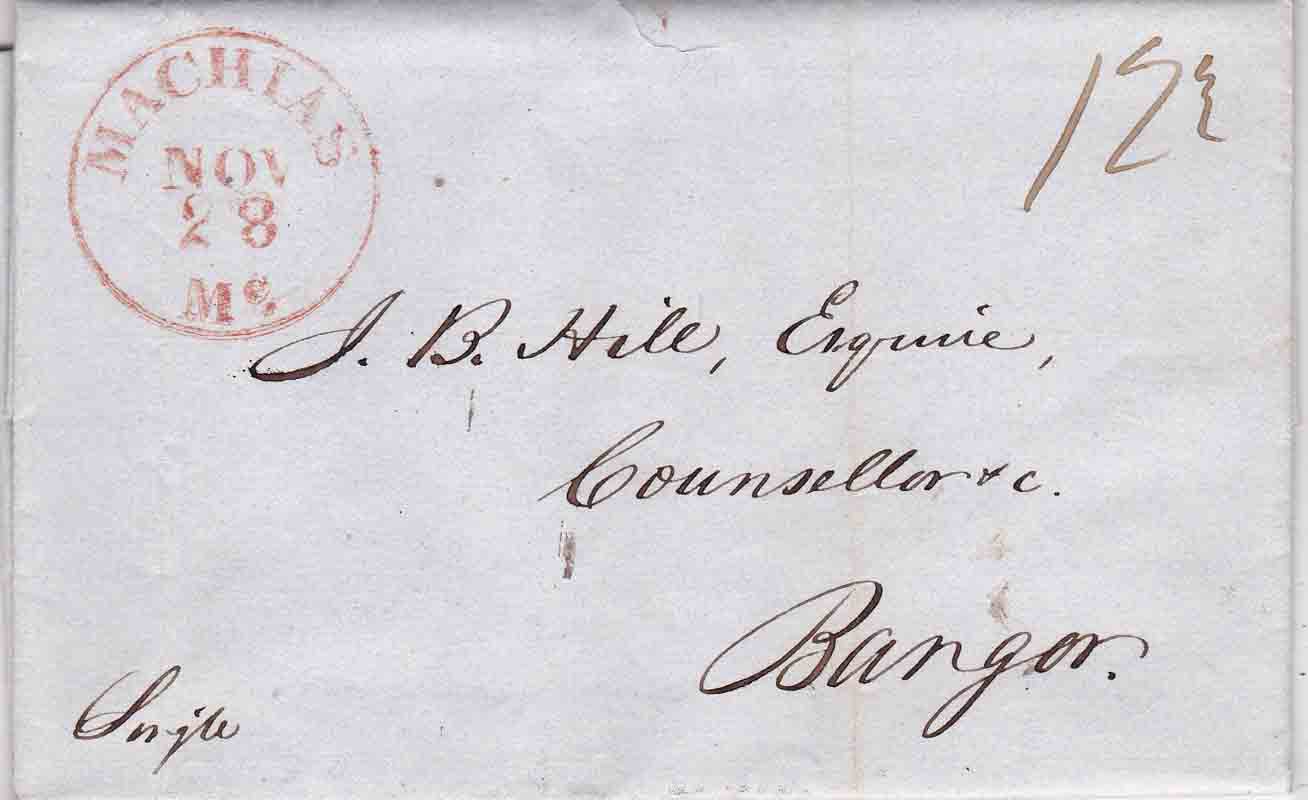 MACHIAS
NOV
28
Me.
12½
J. B. Hill, Esquire,
Counsellor &c.
Bangor.
Single